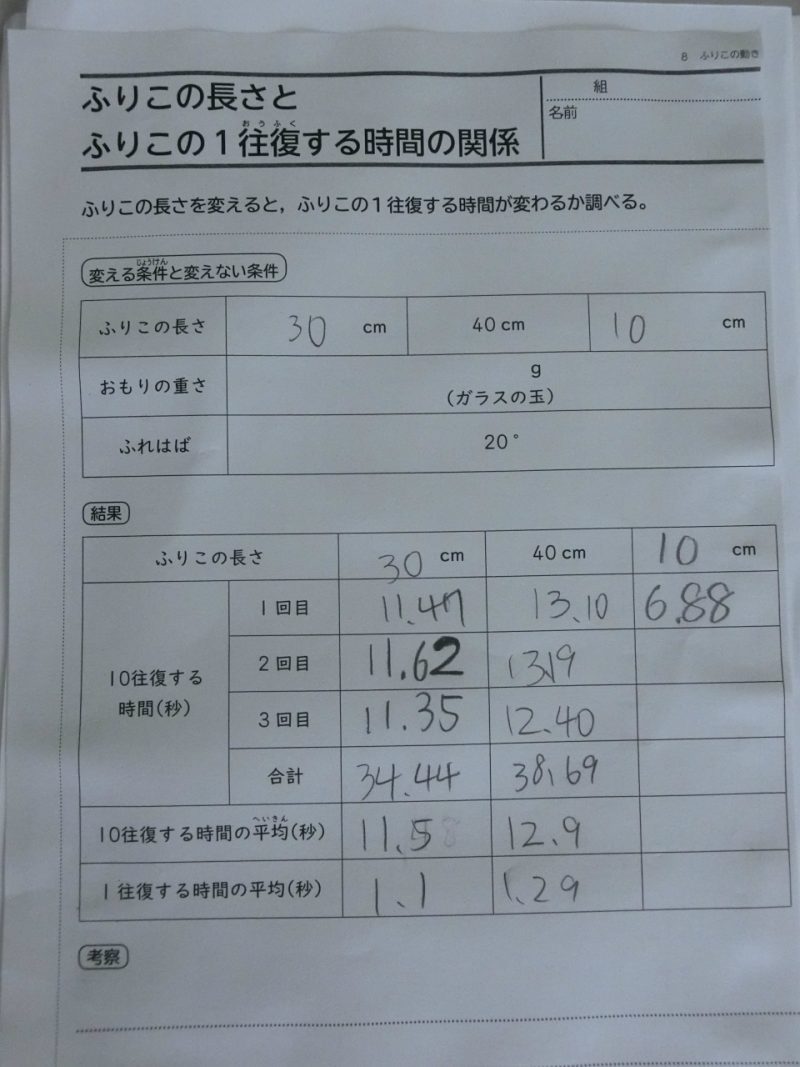 8 ふりこの動き
ふりこの長さと
組
名前
おうふく
ふりこの1往復する時間の関係
ふりこの長さを変えると，ふりこの1往復する時間が変わるか調べる。
じょうけん
変える条件と変えない条件
ふりこの長さ 30 cm 40 cm 10 cm
おもりの重さ g
（ガラスの玉）
ふれはば 20°
結果
ふりこの長さ 30 cm 40 cm 10 cm
10往復する時間(秒)
1回目 11.47 13.10 6.88
2回目 11.62 13.19
3回目 11.35 12.40
合計 34.44 38.69
へいきん
10往復する時間の平均(秒) 11.5 12.9
1往復する時間の平均(秒) 1.1 1.29
考察